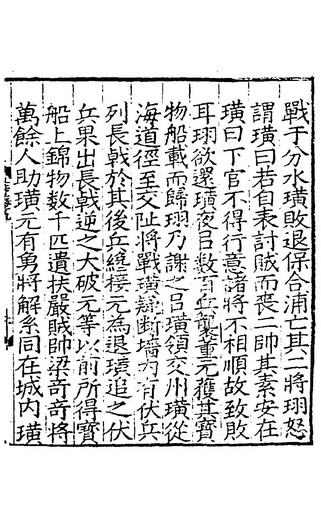 戰于分水璜敗退保合浦亡其二將珝怒
謂璜曰若自表討賊而喪二帥其素安在
璜曰下官不得行意諸將不相順故致敗
耳珝欲還璜夜㠯數百兵襲董元獲其寶
物船載而歸珝乃謝之㠯璜領交州璜從
海道徑至交阯將戰璜疑斷墻内有伏兵
列長戟於其後兵纔接元為退璜追之伏
兵果出長戟逆之大破元等以前所得寶
船上錦物數千匹遺扶嚴賊帥梁奇奇將
萬餘人助璜元有勇將解系同在城内璜